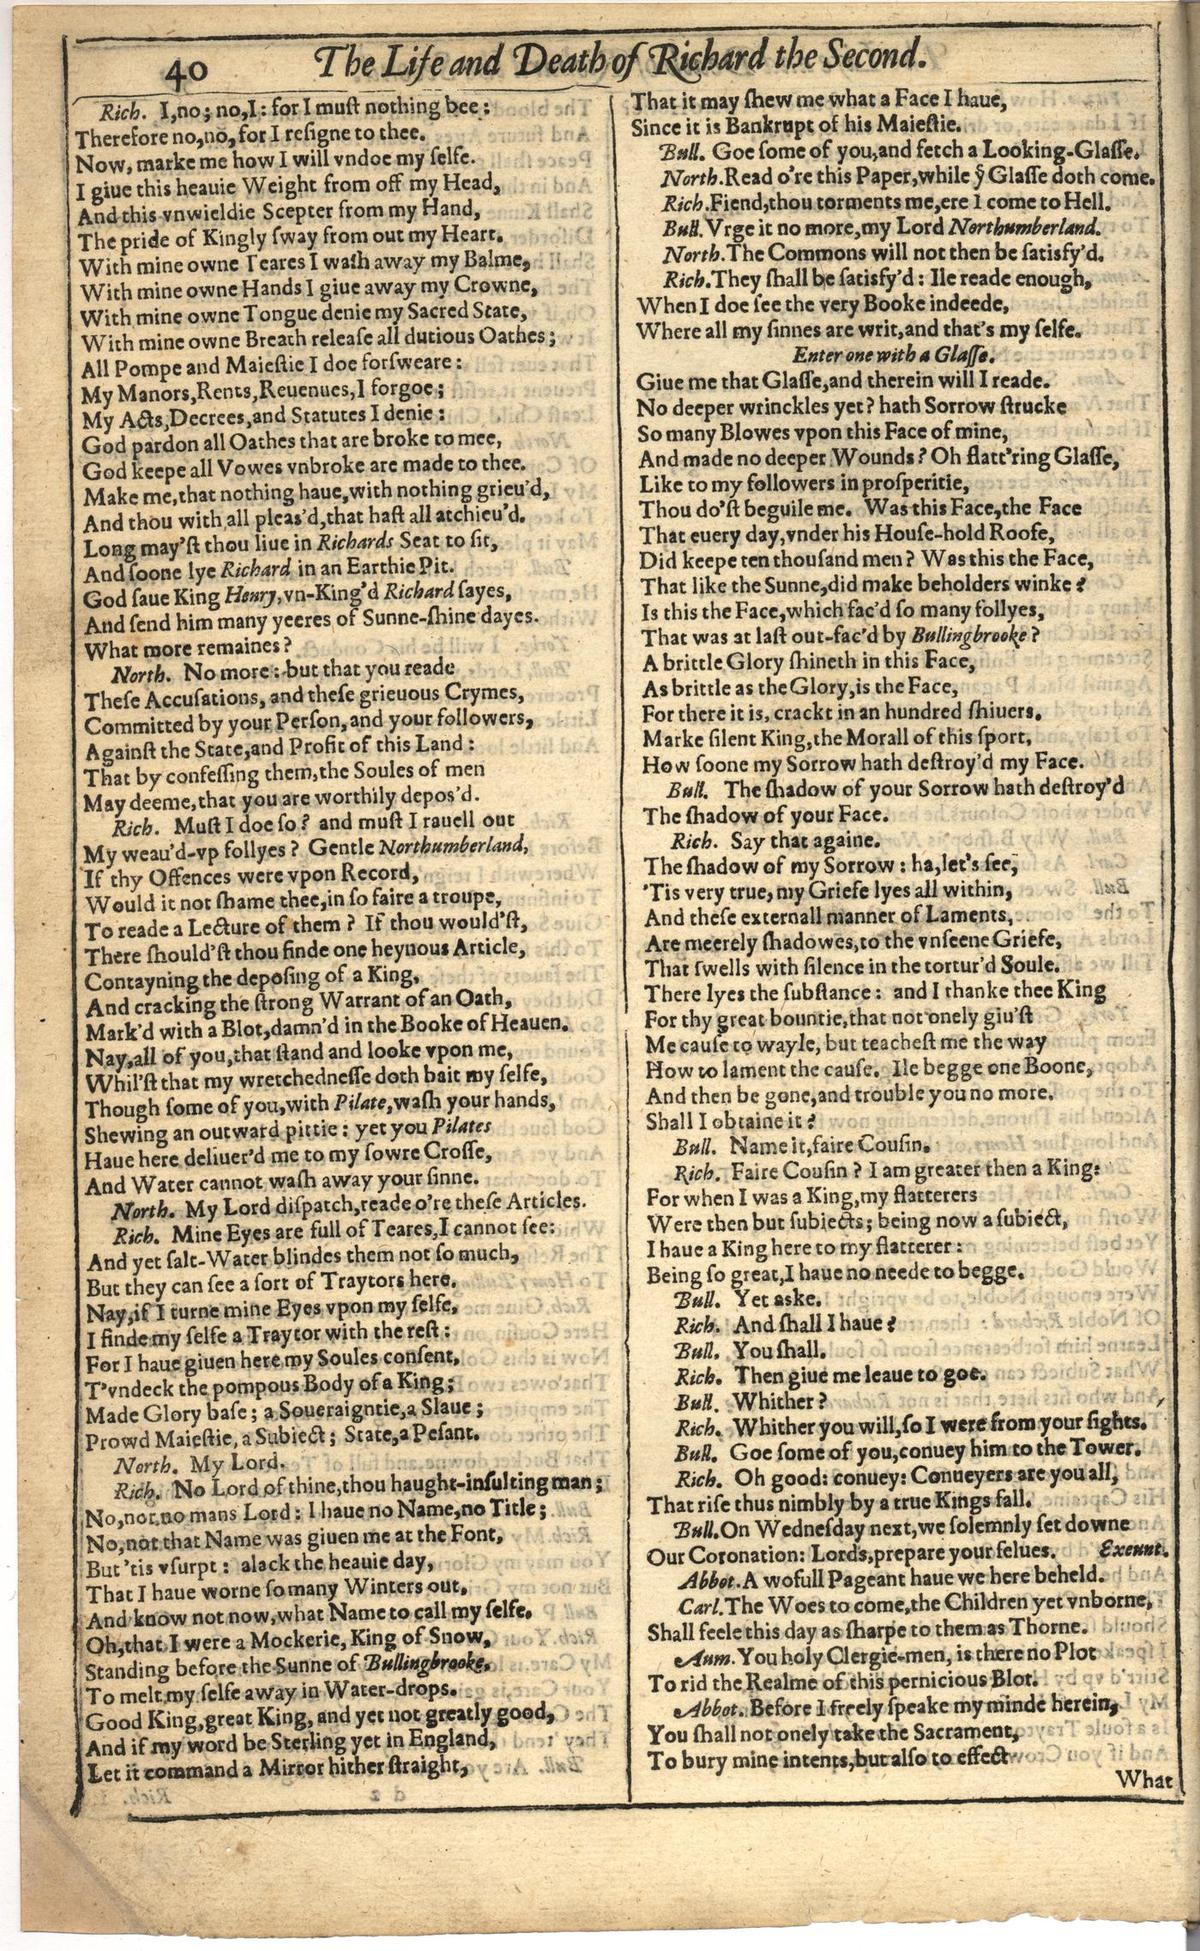 40
The Life and Death of Richard the Second.
Rich. I,no; no,I: for I muſt nothing bee:
Therefore no,no,for I reſigne to thee.
Now, marke me how I will vndoe my ſelfe.
I giue this heauie Weight from off my Head,
And this vnwieldie Scepter from my Hand,
The pride of Kingly ſway from out my Heart.
With mine owne Teares I waſh away my Balme,
With mine owne Hands I giue away my Crowne,
With mine owne Tongue denie my Sacred State,
With mine owne Breath releaſe all dutious Oathes;
All Pompe and Maieſtie I doe forſweare:
My Manors,Rents,Reuenues,I forgoe;
My Acts,Decrees,and Statutes I denie:
God pardon all Oathes that are broke to mee,
God keepe all Vowes vnbroke are made to thee.
Make me,that nothing haue,with nothing grieu'd,
And thou with all pleas'd,that haſt all atchieu'd.
Long may'ſt thou liue in Richards Seat to ſit,
And ſoone lye Richard in an Earthie Pit.
God ſaue King Henry,vn-King'd Richard ſayes,
And ſend him many yeeres of Sunne-ſhine dayes.
What more remaines?
North. No more: but that you reade
Theſe Accuſations, and theſe grieuous Crymes,
Committed by your Perſon,and your followers,
Againſt the State,and Profit of this Land:
That by confeſſing them,the Soules of men
May deeme,that you are worthily depos'd.
Rich. Muſt I doe ſo? and muſt I rauell out
My weau'd-vp follyes? Gentle Northumberland,
If thy Offences were vpon Record,
Would it not ſhame thee,in ſo faire a troupe,
To reade a Lecture of them? If thou would'ſt,
There ſhould'ſt thou finde one heynous Article,
Contayning the depoſing of a King,
And cracking the ſtrong Warrant of an Oath,
Mark'd with a Blot,damn'd in the Booke of Heauen.
Nay,all of you,that ſtand and looke vpon me,
Whil'ſt that my wretchedneſſe doth bait my ſelfe,
Though ſome of you,with Pilate,waſh your hands,
Shewing an outward pittie: yet you Pilates
Haue here deliuer'd me to my ſowre Croſſe,
And Water cannot waſh away your ſinne.
North. My Lord diſpatch,reade o're theſe Articles.
Rich. Mine Eyes are full of Teares,I cannot ſee:
And yet ſalt-Water blindes them not ſo much,
But they can ſee a ſort of Traytors here.
Nay,if I turne mine Eyes vpon my ſelfe,
I finde my ſelfe a Traytor with the reſt:
For I haue giuen here my Soules conſent,
T'vndeck the pompous Body of a King;
Made Glory baſe; a Soueraigntie,a Slaue;
Prowd Maieſtie, a Subiect; State,a Peſant.
North. My Lord.
Rich. No Lord of thine,thou haught-inſulting man;
No,nor no mans Lord: I haue no Name,no Title;
No,not that Name was giuen me at the Font,
But 'tis vſurpt: alack the heauie day,
That I haue worne ſo many Winters out,
And know not now,what Name to call my ſelfe.
Oh,that I were a Mockerie, King of Snow,
Standing before the Sunne of Bullingbrooke,
To melt my ſelfe away in Water-drops.
Good King,great King, and yet not greatly good,
And if my word be Sterling yet in England,
Let it command a Mirror hither ſtraight,
That it may ſhew me what a Face I haue,
Since it is Bankrupt of his Maieſtie.
Bull. Goe ſome of you,and fetch a Looking-Glaſſe.
North.Read o're this Paper,while yͤ Glaſſe doth come.
Rich.Fiend,thou torments me,ere I come to Hell.
Bull.Vrge it no more,my Lord Northumberland.
North.The Commons will not then be ſatisfy'd.
Rich.They ſhall be ſatisfy'd: Ile reade enough,
When I doe ſee the very Booke indeede,
Where all my ſinnes are writ,and that's my ſelfe.
Enter one with a Glaſſe.
Giue me that Glaſſe,and therein will I reade.
No deeper wrinckles yet? hath Sorrow ſtrucke
So many Blowes vpon this Face of mine,
And made no deeper Wounds? Oh flatt'ring Glaſſe,
Like to my followers in proſperitie,
Thou do'ſt beguile me. Was this Face,the Face
That euery day,vnder his Houſe-hold Roofe,
Did keepe ten thouſand men? Was this the Face,
That like the Sunne,did make beholders winke?
Is this the Face,which fac'd ſo many follyes,
That was at laſt out-fac'd by Bullingbrooke?
A brittle Glory ſhineth in this Face,
As brittle as the Glory,is the Face,
For there it is, crackt in an hundred ſhiuers.
Marke ſilent King,the Morall of this ſport,
How ſoone my Sorrow hath deſtroy'd my Face.
Bull. The ſhadow of your Sorrow hath deſtroy'd
The ſhadow of your Face.
Rich. Say that againe.
The ſhadow of my Sorrow: ha,let's ſee,
'Tis very true,my Griefe lyes all within,
And theſe externall manner of Laments,
Are meerely ſhadowes,to the vnſeene Griefe,
That ſwells with ſilence in the tortur'd Soule.
There lyes the ſubſtance: and I thanke thee King
For thy great bountie,that not onely giu'ſt
Me cauſe to wayle, but teacheſt me the way
How to lament the cauſe. Ile begge one Boone,
And then be gone,and trouble you no more.
Shall I obtaine it?
Bull. Name it,faire Couſin.
Rich. Faire Couſin? I am greater then a King:
For when I was a King,my flatterers
Were then but ſubiects; being now a ſubiect,
I haue a King here to my flatterer:
Being ſo great,I haue no neede to begge.
Bull. Yet aske.
Rich. And ſhall I haue?
Bull. You ſhall.
Rich. Then giue me leaue to goe.
Bull. Whither?
Rich. Whither you will,ſo I were from your ſights.
Bull. Goe ſome of you,conuey him to the Tower.
Rich. Oh good: conuey: Conueyers are you all,
That riſe thus nimbly by a true Kings fall.
Bull.On Wedneſday next,we ſolemnly ſet downe
Our Coronation: Lords,prepare your ſelues. Exeunt.
Abbot.A wofull Pageant haue we here beheld.
Carl.The Woes to come,the Children yet vnborne,
Shall feele this day as ſharpe to them as Thorne.
Aum. You holy Clergie-men, is there no Plot
To rid the Realme of this pernicious Blot.
Abbot. Before I freely ſpeake my minde herein,
You ſhall not onely take the Sacrament,
To bury mine intents,but alſo to effect
What